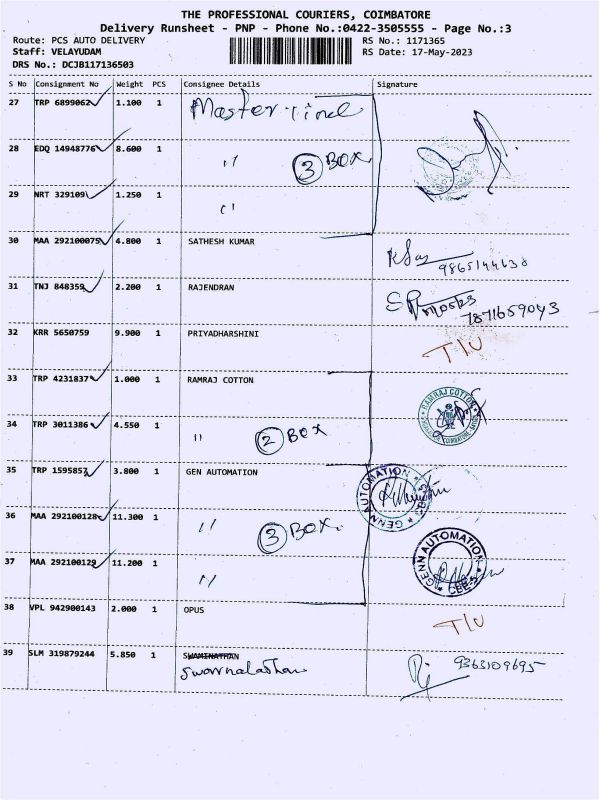 THE PROFESSIONAL COURIERS, COIMBATORE
Delivery Runsheet - PNP - Phone No.:0422-3505555 - Page No.:3
Route: PCS AUTO DELIVERY RS No.: 1171365
Staff: VELAYUDAM RS Date: 17-May-2023
DRS No.: DCJB117136503
S No Consignment No Weight PCS Consignee Details Signature
27 TRP 6899062 1.100 1 Master
28 EDQ 14948776 8.600 1 " 3 BOX
29 NRT 329109 1.250 1 "
30 MAA 292100075 4.800 1 SATHESH KUMAR
9865144638
31 TNJ 848359 2.200 1 RAJENDRAN
7871659043
32 KRR 5650759 9.900 1 PRIYADHARSHINI T/U
33 TRP 4231837 1.000 1 RAMRAJ COTTON RAMRAJ COTTON
34 TRP 3011386 4.550 1 " 2 BOX
35 TRP 1595857 3.800 1 GEN AUTOMATION GENN AUTOMATION
36 MAA 292100128 11.300 1 " 3 BOX.
37 MAA 292100129 11.200 1 " GENN AUTOMATION CBE-5
38 VPL 942900143 2.000 1 OPUS T/U
39 SLM 319879244 5.850 1 SWAMINATHAN 9363109695